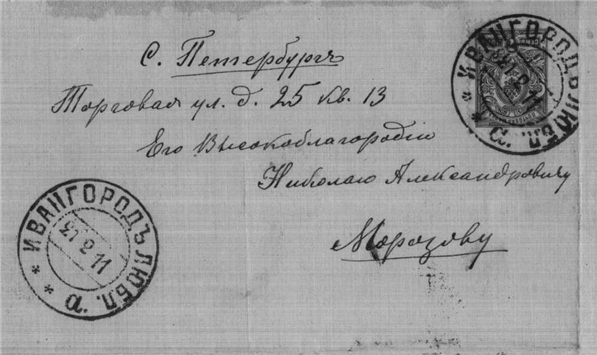 С. Петербургъ
Торговая ул. д. 25 кв. 13
Его Высокоблагородію
Николаю Александровичу
Морозову
ИВАНГОРОДЪ ЛЮБЛ.
ИВАНГОРОДЪ ЛЮБЛ.
2 11